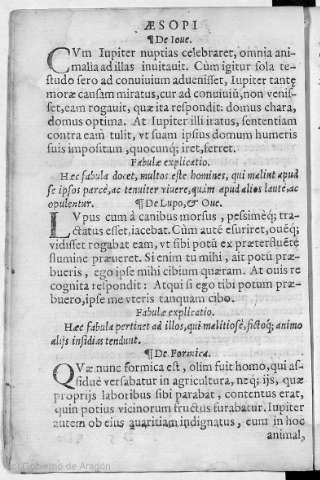 ÆSOPI
¶De Ioue.
CVm Iupiter nuptias celebraret, omnia ani-
malia ad illas inuitauit. Cùm igitur sola te-
studo sero ad conuiuium aduenisset, Iupiter tantę
moræ causam miratus, cur ad conuiuiũ, non venis-
set, eam rogauit, quæ ita respondit: domus chara,
domus optima. At Iupiter illi iratus, sententiam
contra eam tulit, vt suam ipsius domum humeris
suis impositam, quocunq; iret, ferret.
Fabulæ explicatio.
Hæc fabula docet, multos este homines, qui malint apud
se ipsos parcè, ac tenuiter viuere, quàm apud alios lautè, ac
opulenter.
¶De Lupo, & Oue.
LVpus cum à canibus morsus, pessimèq; tra-
ctatus esset, iacebat. Cùm autẽ esuriret, ouẽq;
vidisset rogabat eam, vt sibi potũ ex præterfluẽte
flumine præueret. Si enim tu mihi, ait potũ præ-
bueris, ego ipse mihi cibium quæram. At ouis re
cognita respondit: Atqui si ego tibi potum præ-
buero, ipse me vteris tanquam cibo.
Fabulæ explicatio.
Hæc fabula pertinet ad illos, qui malitiosè, fictoq; animo
alijs insidias tendunt.
¶De Formica.
QVæ nunc formica est, olim fuit homo, qui as-
siduè versabatur in agricultura, neq; ijs, quæ
proprijs laboribus sibi parabat, contentus erat,
quin potius vicinorum fructus furabatur. Iupiter
autem ob eius auaritiam indignatus, eum in hoc
animal,
© Gobierno de Aragón